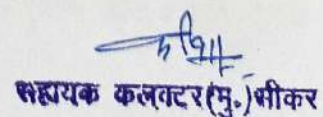 सहायक कलक्टर(मु.)सीकर